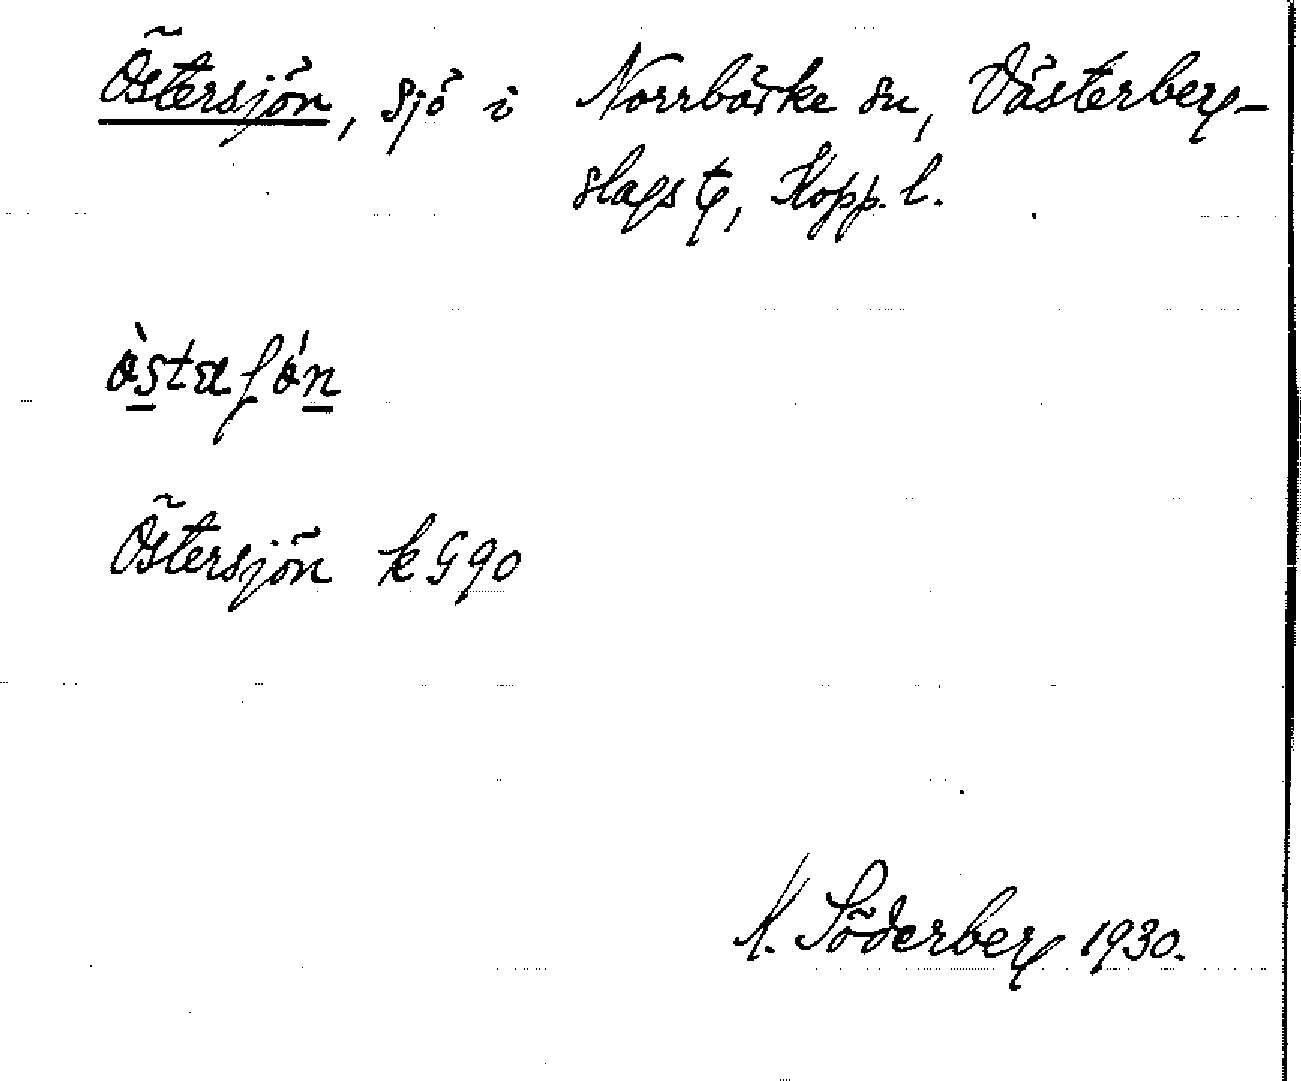 Östersjön, sjö i Norrbärke sn, Västerberg-
slags tg, Kopp. l.
Östersjön k G 90
K. Söderberg 1930.